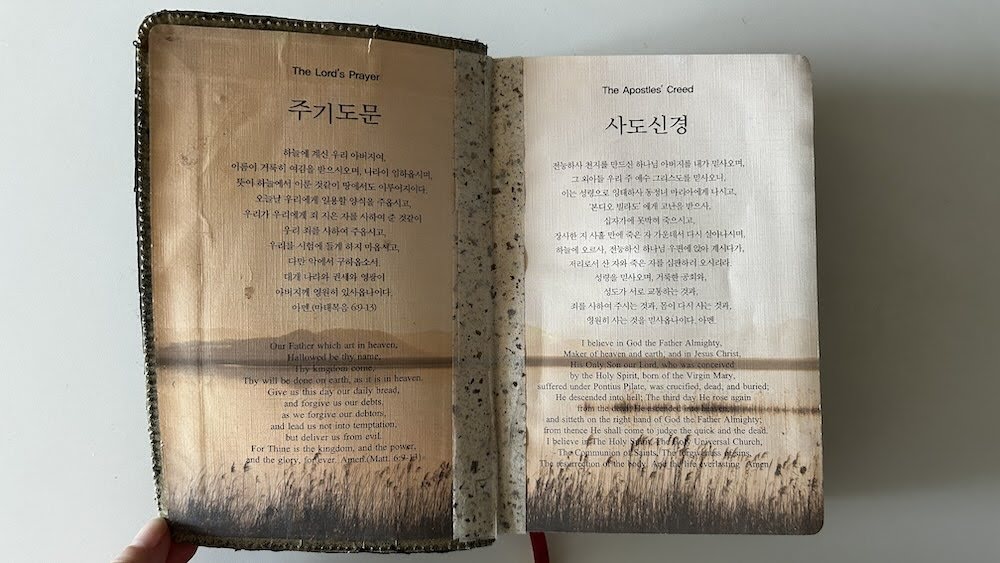 The Lord's Prayer
주기도문
하늘에 계신 우리 아버지여,
이름이 거룩히 여김을 받으시오며, 나라이 임하옵시며,
뜻이 하늘에서 이룬 것같이 땅에서도 이루어지이다.
오늘날 우리에게 일용할 양식을 주옵시고,
우리가 우리에게 죄 지은 자를 사하여 준 것같이
우리 죄를 사하여 주옵시고,
우리를 시험에 들게 하지 마옵시고,
다만 악에서 구하옵소서.
대개 나라와 권세와 영광이
아버지께 영원히 있사옵나이다.
아멘 (마태복음 6:9-13)
Our Father which art in heaven,
Hallowed be thy name,
Thy kingdom come,
Thy will be done on earth, as it is in heaven,
Give us this day our daily bread,
and forgive us our debts,
as we forgive our debtors,
and lead us not into temptation,
but deliver us from evil.
For Thine is the kingdom, and the power,
and the glory, for ever. Amen.(Matt. 6:9-13)
The Apostles' Creed
사도신경
전능하사 천지를 만드신 하나님 아버지를 내가 믿사오며,
그 외아들 우리 주 예수 그리스도를 믿사오니,
이는 성령으로 잉태하사 동정녀 마리아에게 나시고,
'본디오 빌라도' 에게 고난을 받으사,
십자가에 못박혀 죽으시고,
장사한 지 사흘 만에 죽은 자 가운데서 다시 살아나시며,
하늘에 오르사, 전능하신 하나님 우편에 앉아 계시다가,
저리로서 산 자와 죽은 자를 심판하러 오시리라.
성령을 믿사오며, 거룩한 공회와,
성도가 서로 교통하는 것과,
죄를 사하여 주시는 것과, 몸이 다시 사는 것과,
영원히 사는 것을 믿사옵나이다. 아멘.
I believe in God the Father Almighty,
Maker of heaven and earth, and in Jesus Christ,
His Only Son our Lord, who was conceived
by the Holy Spirit, born of the Virgin Mary,
suffered under Pontius Pilate, was crucified, dead, and buried;
He descended into hell; The third day He rose again
from the dead; He ascended into heaven,
and sitteth on the right hand of God the Father Almighty;
from thence He shall come to judge the quick and the dead.
I believe in The Holy Spirit, The Holy Universal Church,
The Communion of Saints, The forgiveness of sins,
The resurrection of the body, And the life everlasting. Amen